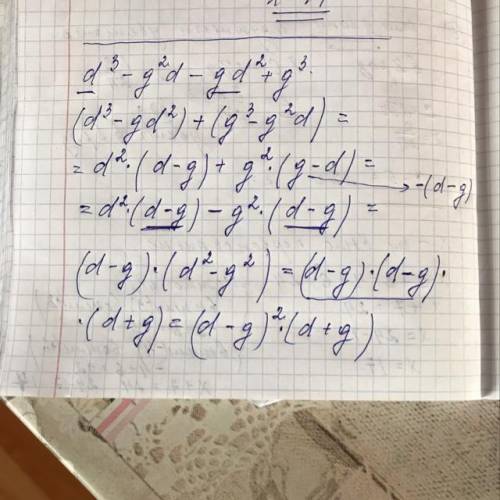 d³ - g²d - gd² + g³.
(d³ - gd²) + (g³ - g²d) =
= d²·(d-g) + g²·(g-d) = -(d-g)
= d²·(d-g) - g²·(d-g) =
(d-g)·(d²-g²) = (d-g)·(d-g)·
·(d+g) = (d-g)²·(d+g)